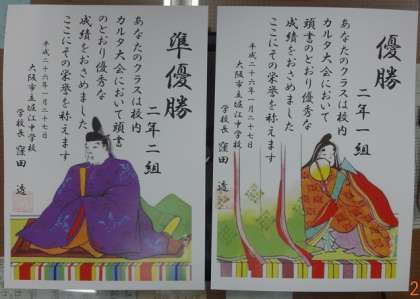 優勝
二年一組
あなたのクラスは校内
カルタ大会において頭書
のとおり優秀な
成績をおさめました
ここにその栄誉を称えます
平成二十六年一月二十七日
大阪市立堀江中学校
学校長 窪田 透
準優勝
二年二組
あなたのクラスは校内
カルタ大会において頭書
のとおり優秀な
成績をおさめました
ここにその栄誉を称えます
平成二十六年一月二十七日
大阪市立堀江中学校
学校長 窪田 透
2